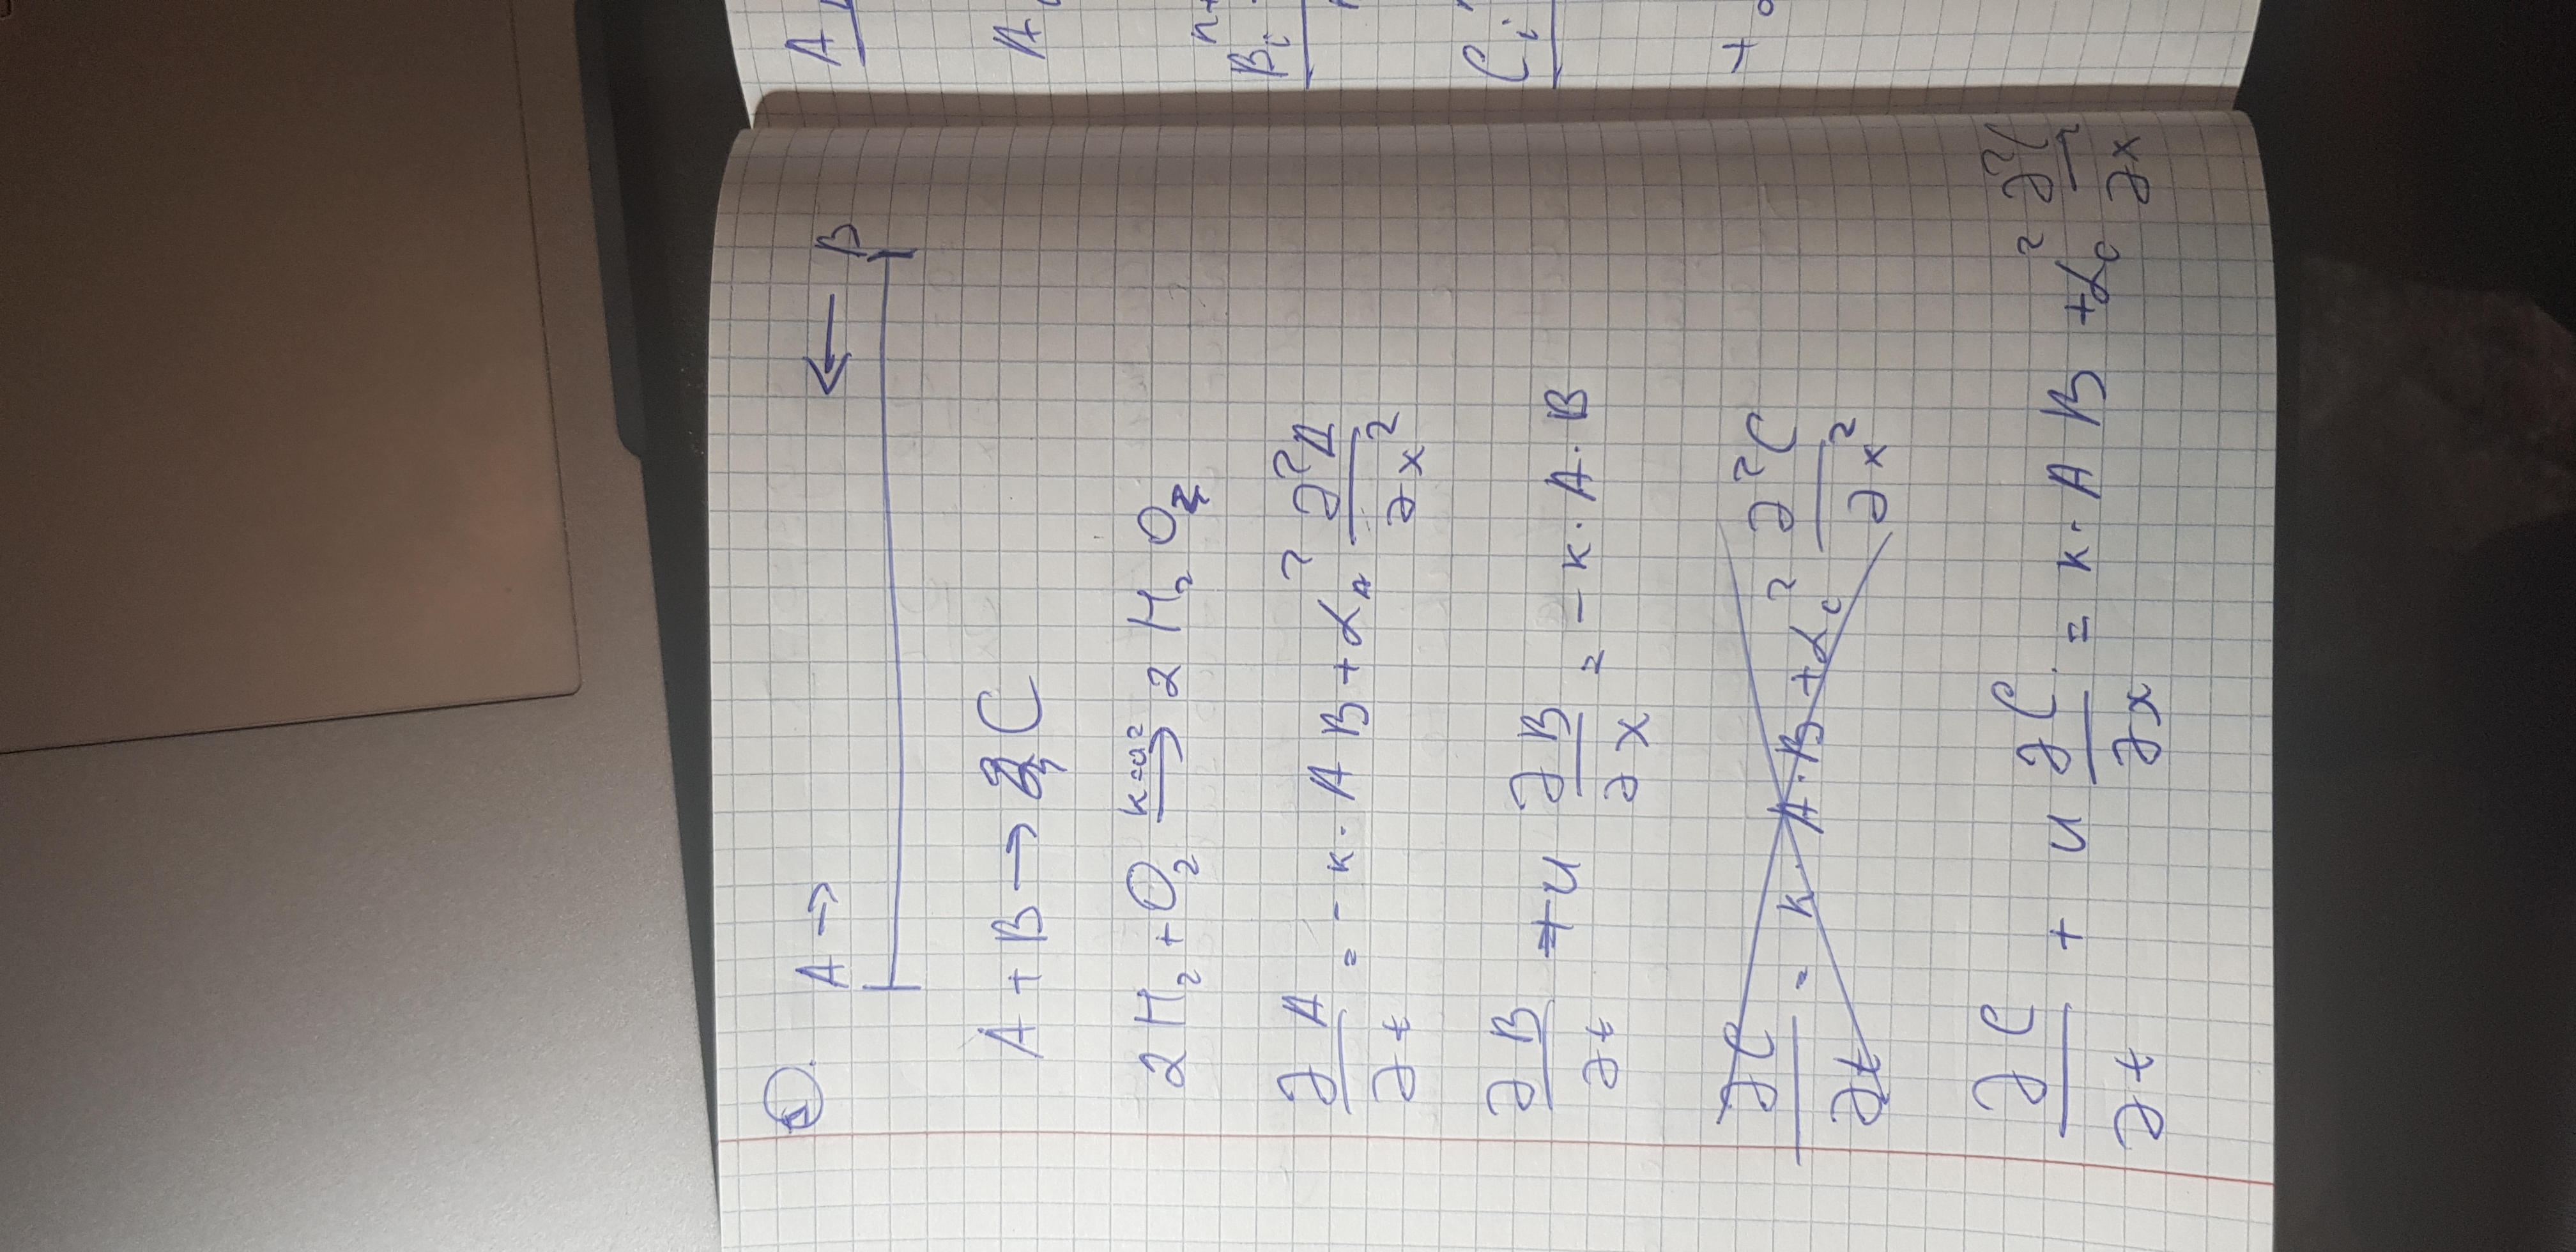 A → ← B
A + B → C
2 H₂ + O₂ → 2 H₂ O
∂A/∂t = - k · A B + α_A² ∂²A/∂x²
∂B/∂t + u ∂B/∂x = - k · A · B
∂C/∂t = k · A · B + α_c² ∂²C/∂x²
∂C/∂t + u ∂C/∂x = k · A B + α_c² ∂²C/∂x